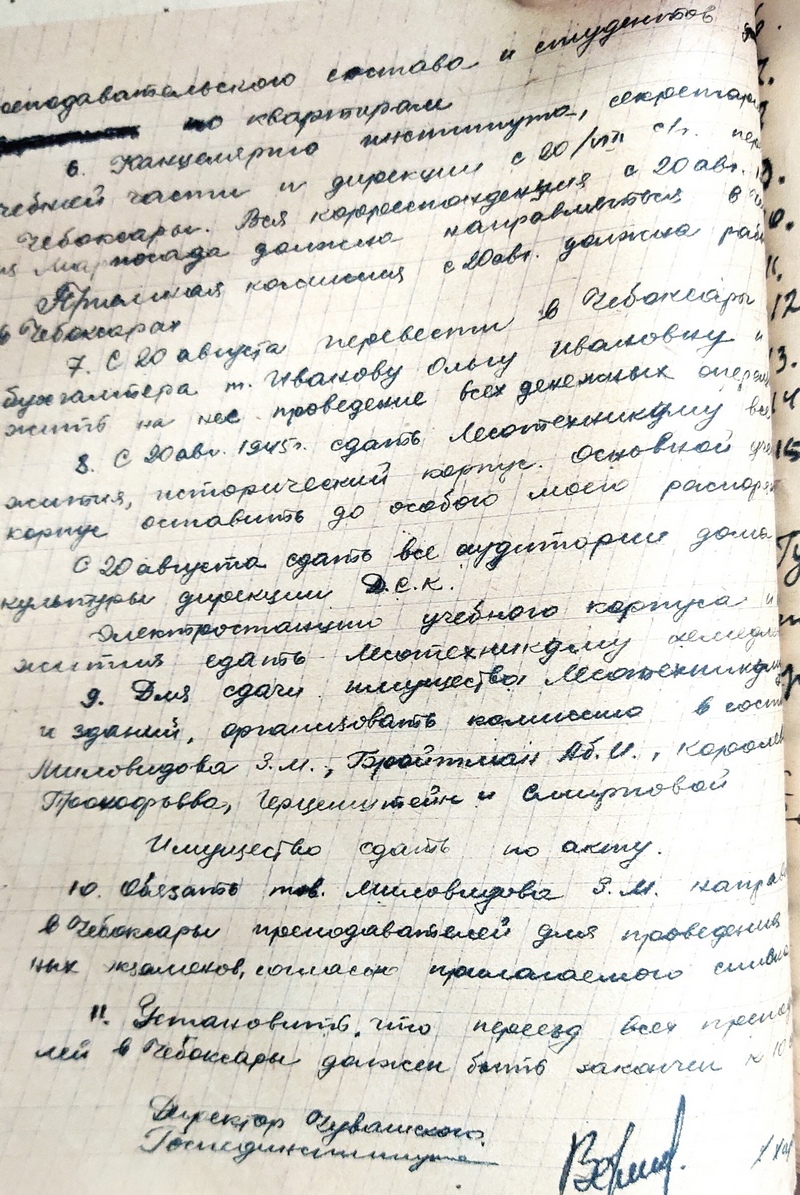 преподавательского состава и студентов
по квартирам
6. Канцелярию института, секретар
чебной части и дирекции с 20/VIII с/г. пер
Чебоксары. Вся корреспонденция с 20 авг.
Мариосада должна направляться в Че
Приемная комиссия с 20 авг. должна раб
в Чебоксарах
7. С 20 августа перевести в Чебоксары
бухгалтера т. Иванову Ольгу Ивановну и
жить на нее проведение всех денежных опера
8. С 20 авг. 1945г. сдать Лесотехникуму все
жития, исторический корпус. Основной уче
корпус оставить до особого моего распоря
С 20 августа сдать все аудитории дома
культуры дирекции Д.С.К.
Электростанцию учебного корпуса и
жития сдать Лесотехникуму немедле
9. Для сдачи имущества Лесотехникуму
и зданий, организовать комиссию в сост
Миловидова З.М., Бройтман Аб.И., Королев
Прокофьева, Герценштейн и Смирновой
Имущество сдать по акту.
10. Обязать тов. Миловидова З.М. направ
в Чебоксары преподавателей для проведения
ных экзаменов, согласно прилагаемого списка
11. Установить, что переезд всех препод
лей в Чебоксары должен быть закончен к 10
Директор Чувашского
Госпединститута
8.
9.
10.
11.
12
13.
14
15